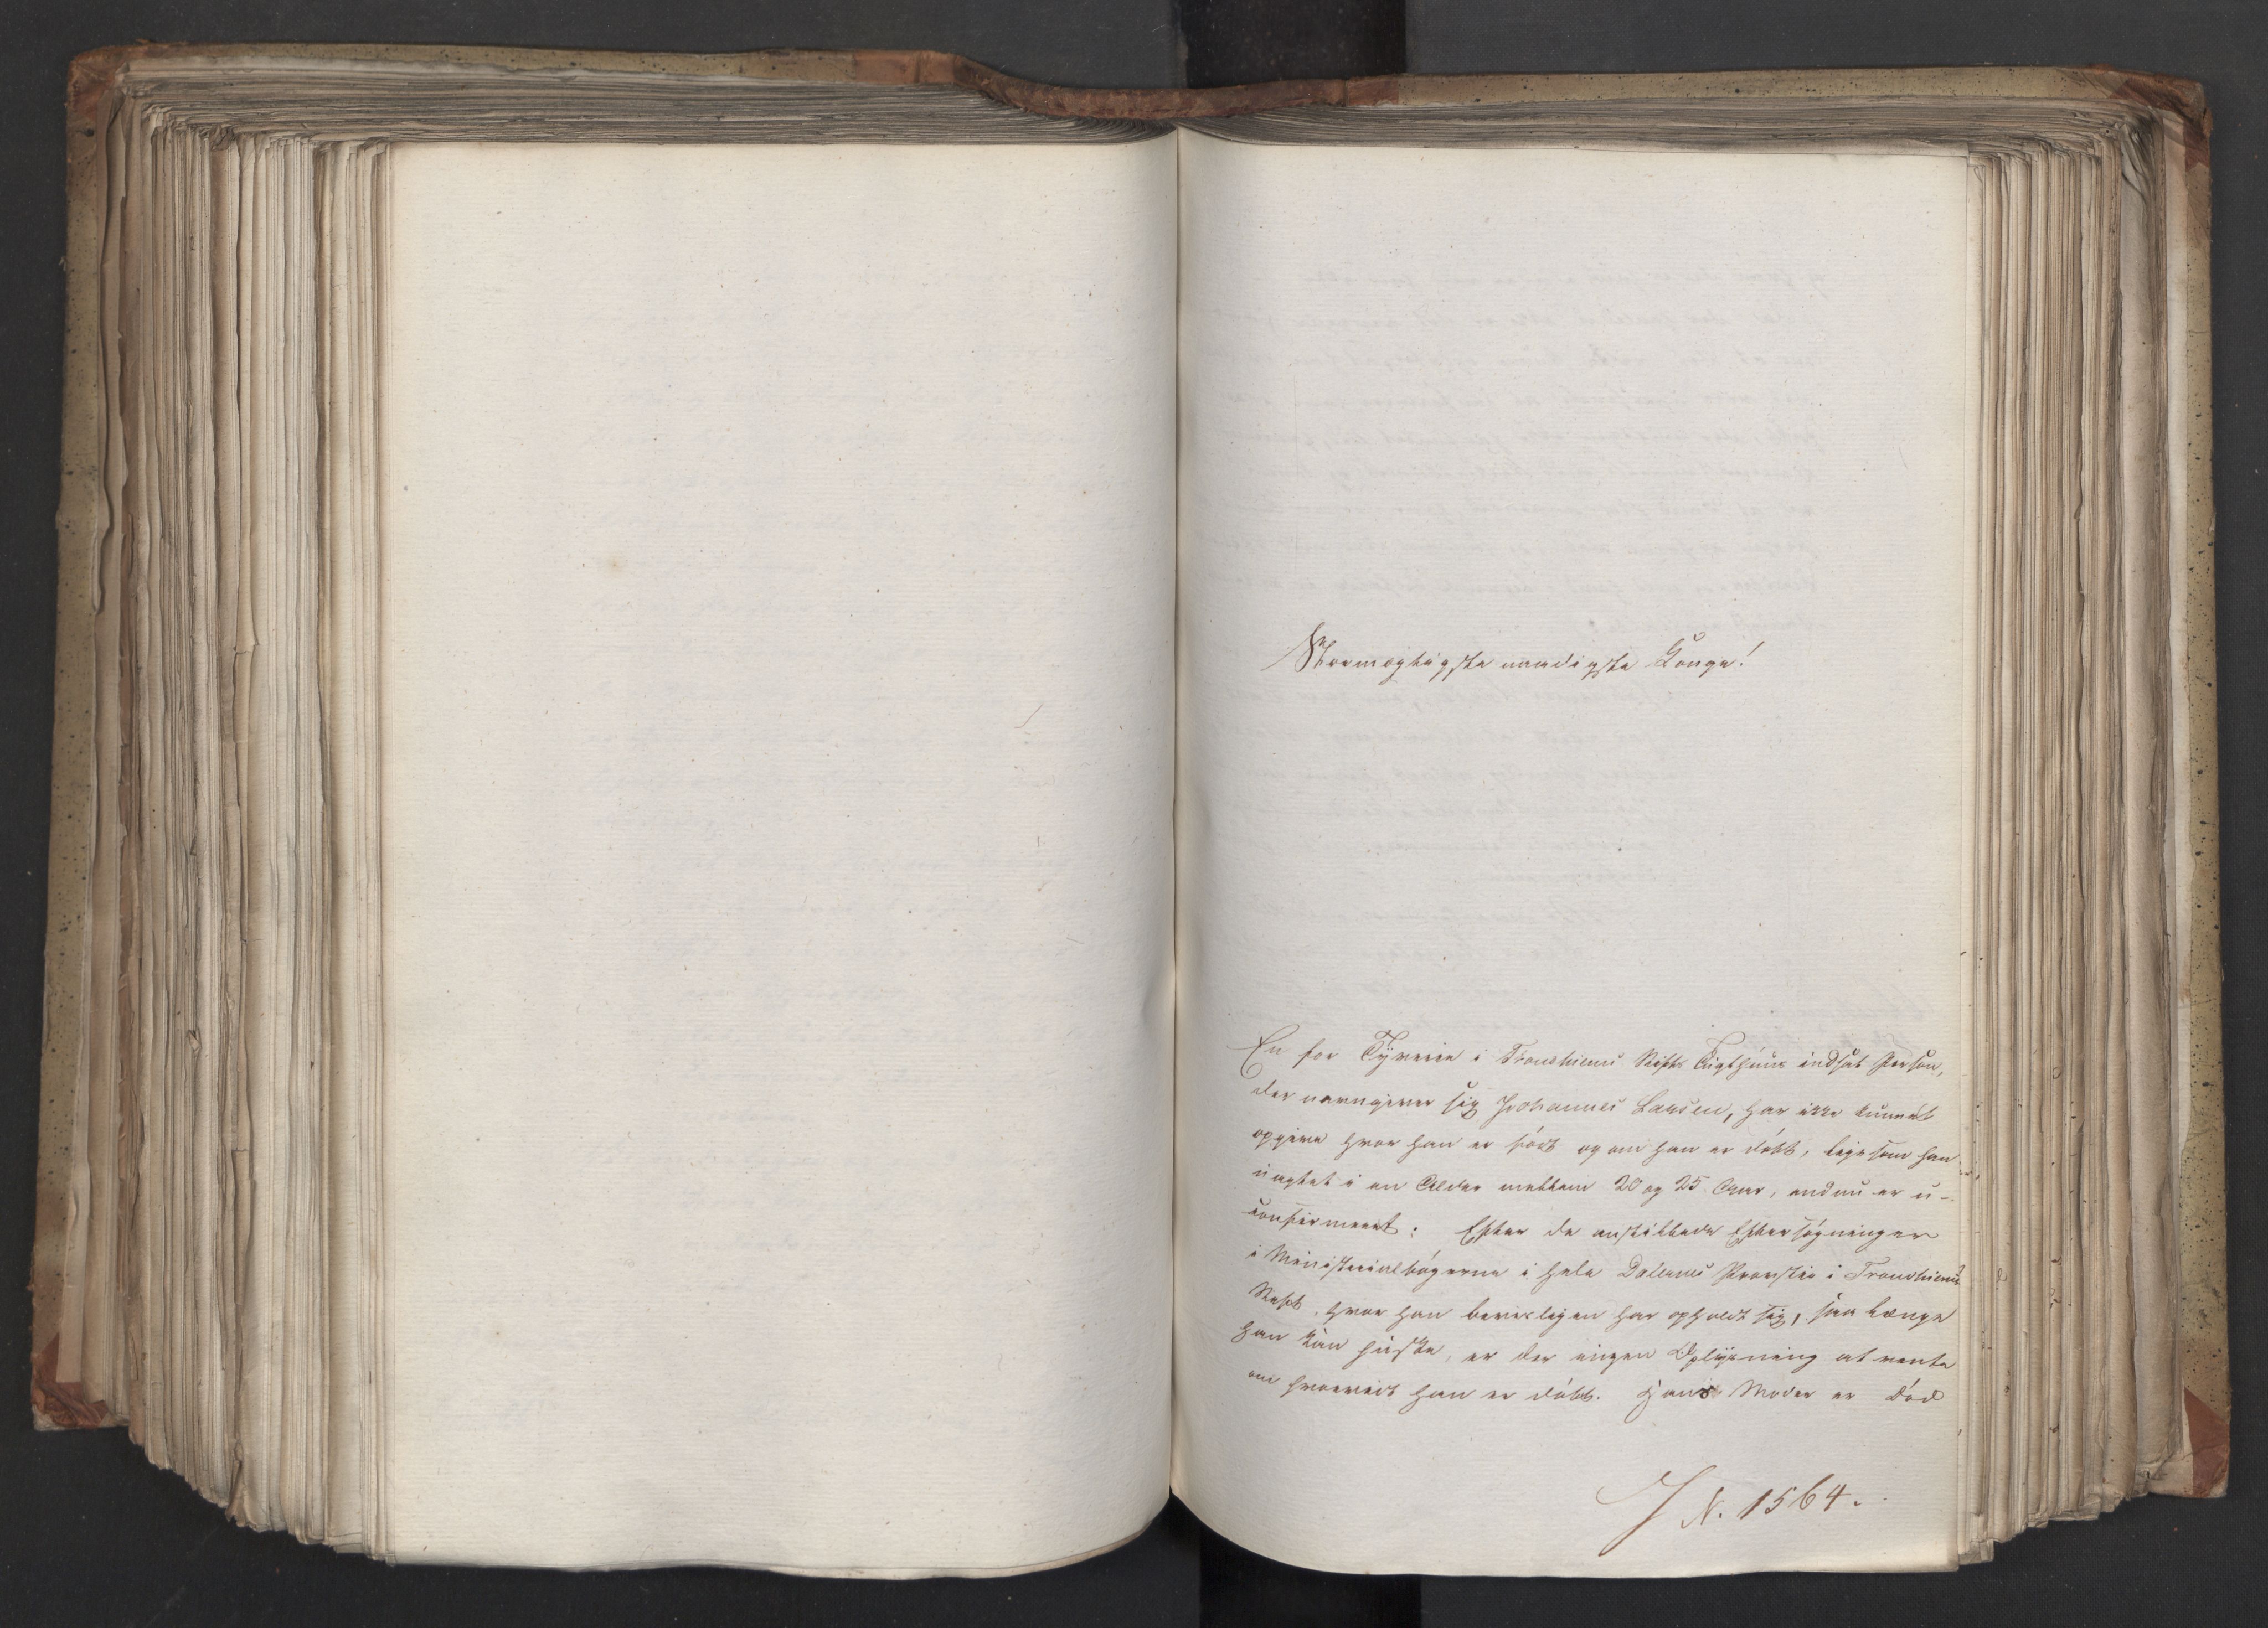 Stormægtigste naadigste Konge!
En for Tyverie i Trondhiems Stifts Tugthuus indsat Person,
der navngiver sig Johannes Larsen, har ikke kunnet
opgive hvor han er født og om han er døbt, ligesom han
uagtet i en Alder mellem 20 og 25 Aar, endnu er u-
confirmeret: Efter de anstillede Eftersøgninger
i Ministerialbøgerne i hele Dalernes Provstie i Trondhiems
Stift, hvor han beviisligen har opholdt sig, saa længe
han kan huske, er der ingen Oplysning at vente
om hvorvidt han er døbt. Hans Moder er død
J N. 1564.